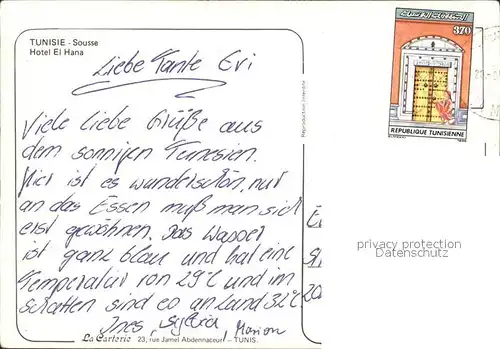 TUNISIE - Sousse
Hotel El Hana
Liebe Tante Evi
Viele liebe Grüße aus
dem sonnigen Tunesien.
Hier ist es wunderschön, nur
an das Essen muß man sich
erst gewöhnen. Das Wasser
ist ganz blau und hat eine
Temperatur von 29°C und im
schatten sind es an Land 32°C
Ines, Sylvia, Marion
La Carterie 23, rue Jamel Abdennaceur - TUNIS.
Reproduction Interdite
370
REPUBLIQUE TUNISIENNE
privacy protection
Datenschutz